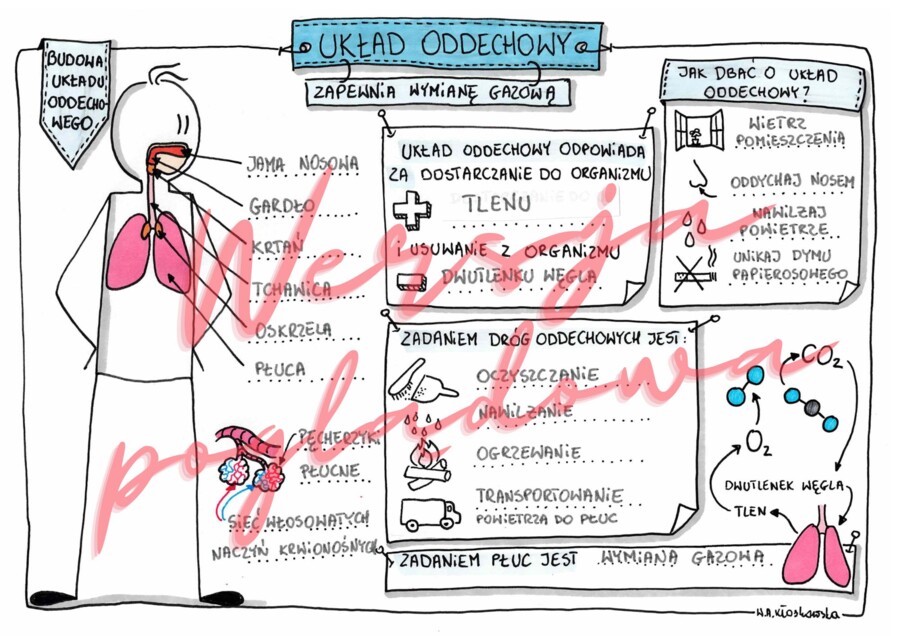 UKŁAD ODDECHOWY
ZAPEWNIA WYMIANĘ GAZOWĄ
BUDOWA
UKŁADU
ODDECHO-
WEGO
JAMA NOSOWA
GARDŁO
KRTAŃ
TCHAWICA
OSKRZELA
PŁUCA
PĘCHERZYKI
PŁUCNE
SIEĆ WŁOSOWATYCH
NACZYŃ KRWIONOŚNYCH
UKŁAD ODDECHOWY ODPOWIADA
ZA DOSTARCZANIE DO ORGANIZMU
TLENU
I USUWANIE Z ORGANIZMU
DWUTLENKU WĘGLA
ZADANIEM DRÓG ODDECHOWYCH JEST:
OCZYSZCZANIE
NAWILŻANIE
OGRZEWANIE
TRANSPORTOWANIE
POWIETRZA DO PŁUC
ZADANIEM PŁUC JEST WYMIANA GAZOWA
JAK DBAĆ O UKŁAD
ODDECHOWY?
WIETRZ
POMIESZCZENIA
ODDYCHAJ NOSEM
NAWILŻAJ
POWIETRZE
UNIKAJ DYMU
PAPIEROSOWEGO
CO2
O2
DWUTLENEK WĘGLA
TLEN
M.A.Kłoskowska
Wersja
poglądowa